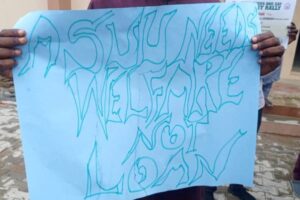 ASUU NEEDS
WELFARE
NOT
LOAN
RALLY